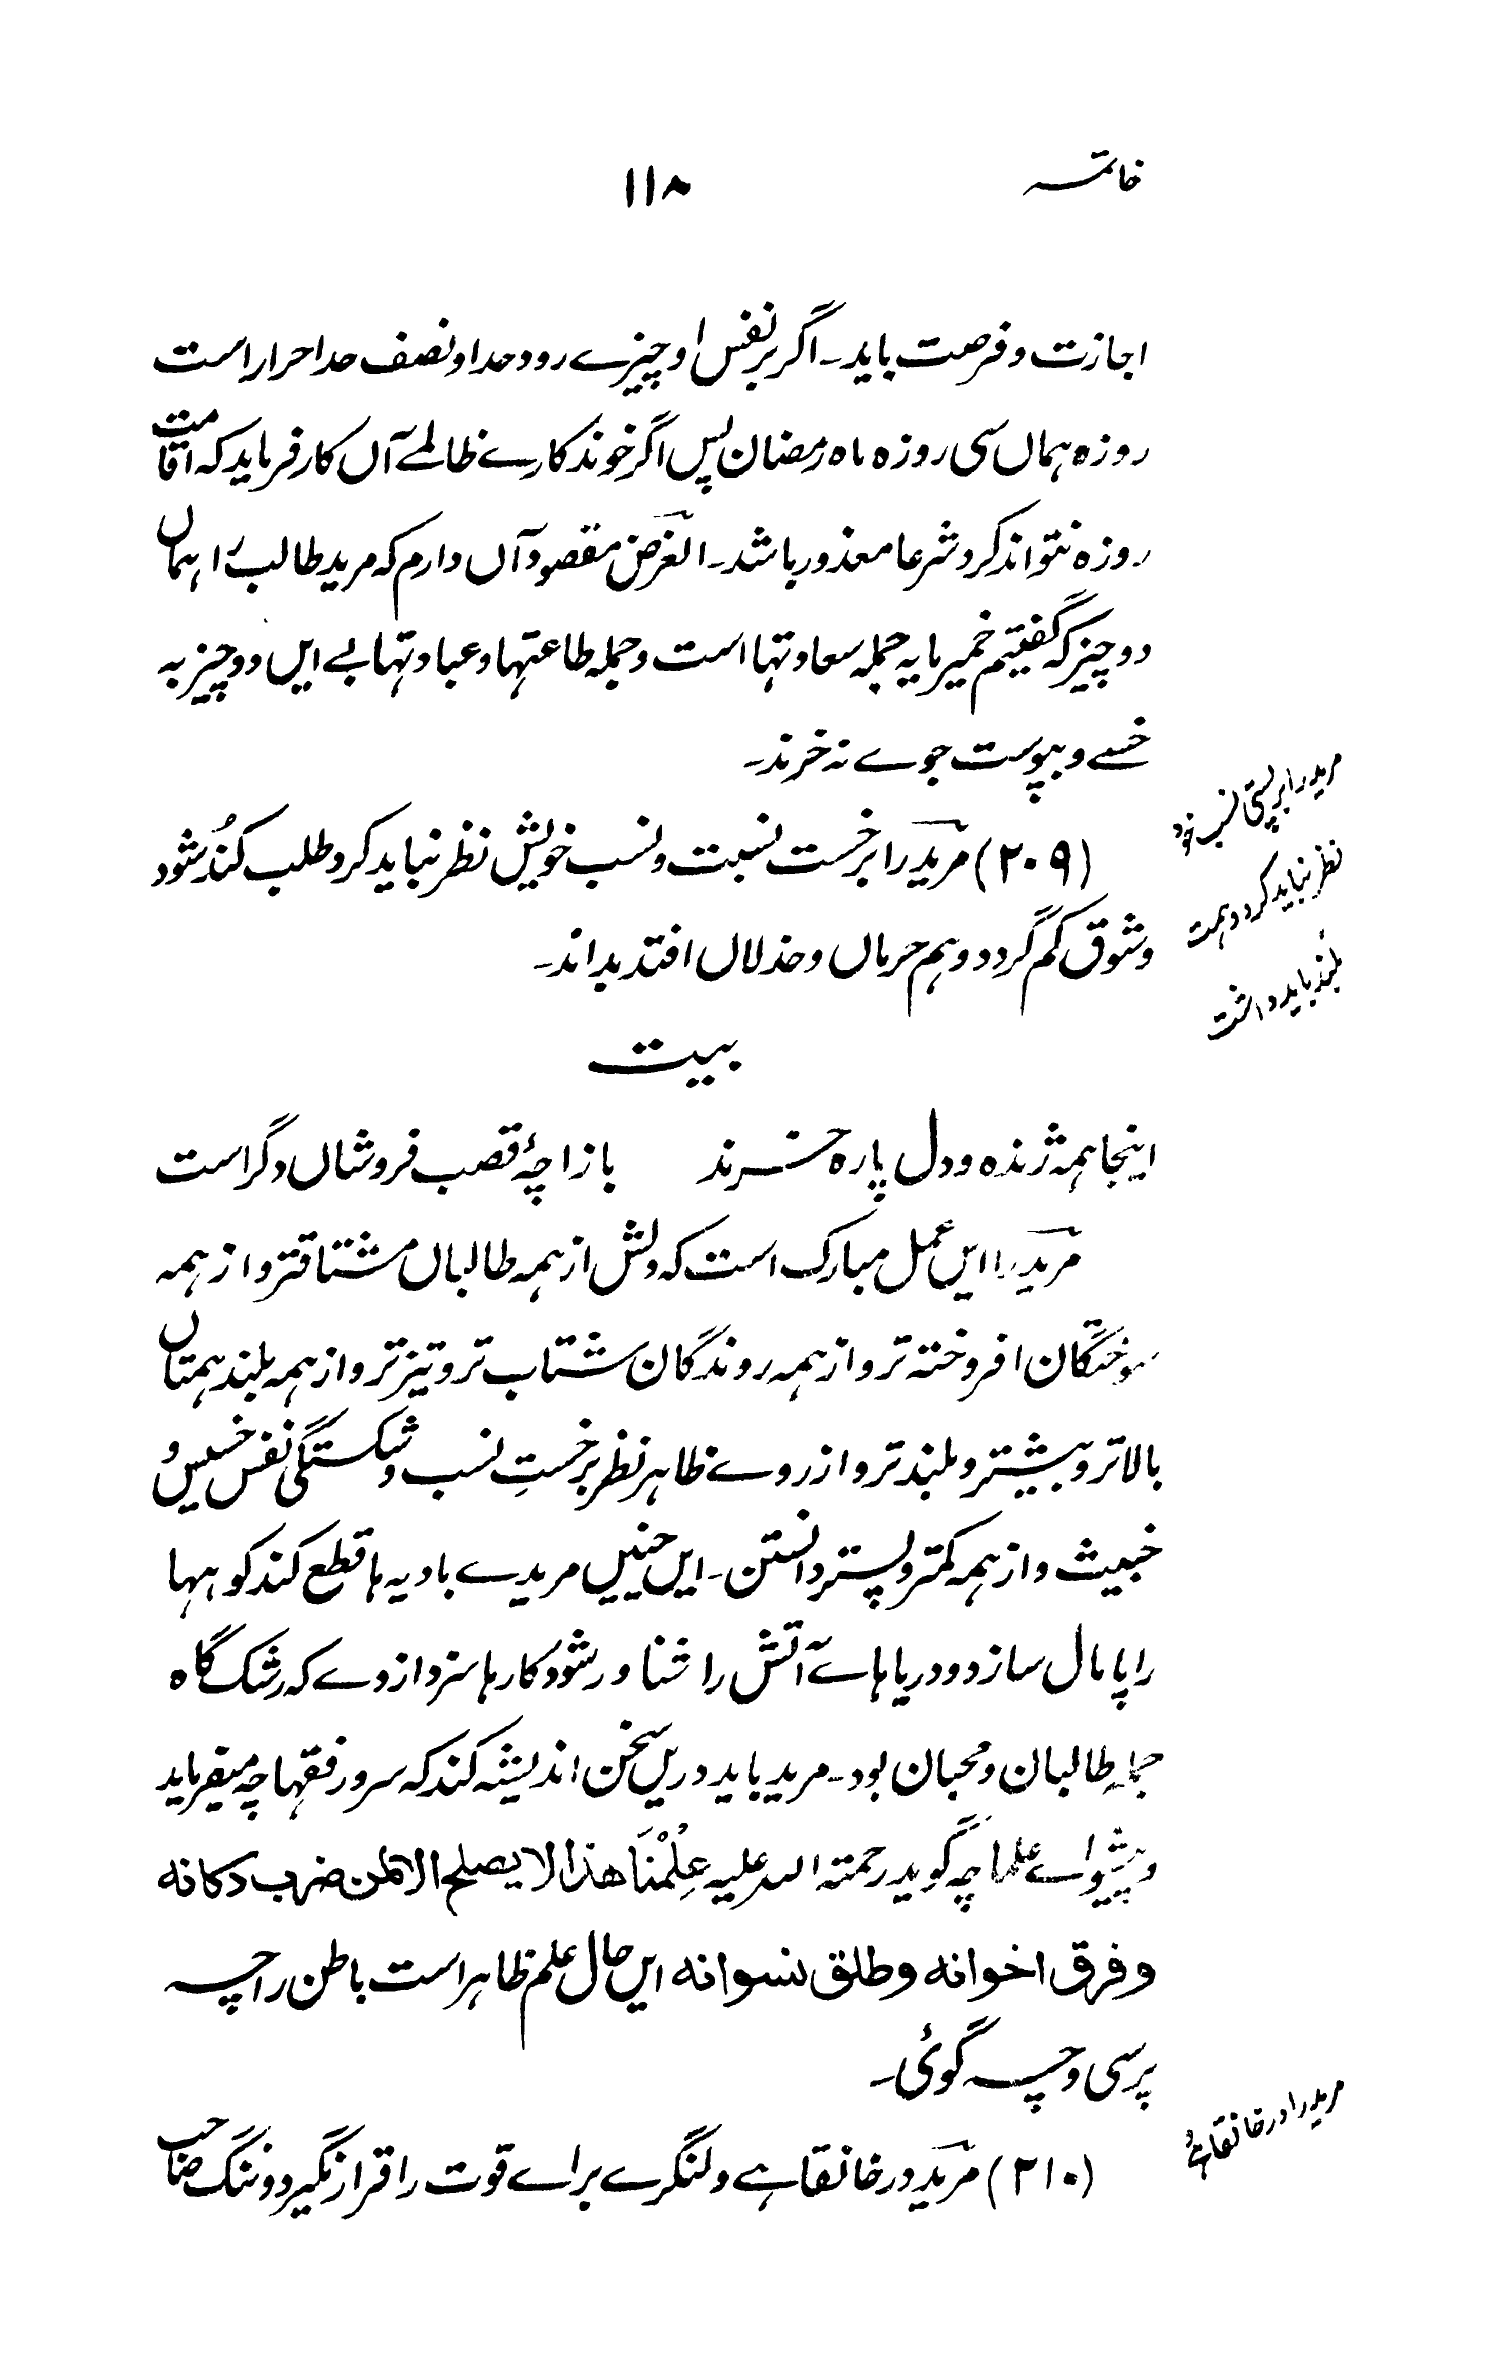 خاتمہ
۱۱۸
اجازت و فرصت باید۔ اگر بر نفس او چیزے رود حد او نصف حد احرار است
روزہ ہماں سی روزہ ماہ رمضان پس اگر خوندکارے ظالمے آں کار فرماید کہ اقامت
روزہ نتواند کرد شرعا معذور باشد۔ الغرض مقصود آں دارم کہ مرید طالب را ہماں
دو چیز کہ گفتیم خمیر مایہ جملہ سعادتہا است و جملہ طاعتہا و عبادتہا بے ایں دو چیز بہ
خسے و بپوست جوے نہ خرند۔
مرید را بر پستی نسب خود
نظر نباید کرد و ہمت
بلند باید داشت
(۲۰۹) مرید را بر خست نسبت و نسب خویش نظر نباید کرد طلب کُند شود
و شوق کم گردد و ہم حرماں و خذلاں افتد بداند۔
بیت
اینجا ہمہ ژندہ و دل پارہ خرند بازاچۂ قصب فروشاں دگر است
مرید را ایں عمل مبارک است کہ دلش از ہمہ طالباں مشتاقتر و از ہمہ
سوختگان افروختہ تر و از ہمہ روندگان شتاب تر و تیز تر و از ہمہ بلند ہمتاں
بالاتر و بیشتر و بلند تر و از روے ظاہر نظر بر خستِ نسب و شکستگی نفس خسیس و
خبیث و از ہمہ کمتر و پستر دانستن۔ ایں چنیں مریدے بادیہ ہا قطع کند کوہہا
را پامال سازد و دریاہاے آتش را شناور شود کارہا سزد ازوے کہ رشک گاہ
جملہ طالبان و محبان بود۔ مرید باید دریں سخن اندیشہ کند کہ سرور فقہا چہ میفرماید
و پیشواے علما چہ گوید رحمتہ اللہ علیہ عِلْمُنَا هذا لا یصلح الا لمن ضرب دکانه
و فرق اخوانه و طلق نسوانه ایں حال علم ظاہر است باطن را چہ
پرسی و چہ گوئی۔
مرید را در خانقاہے
(۲۱۰) مرید در خانقاہے و لنگرے براے قوت را قرار نگیرد و ننگ صاحب